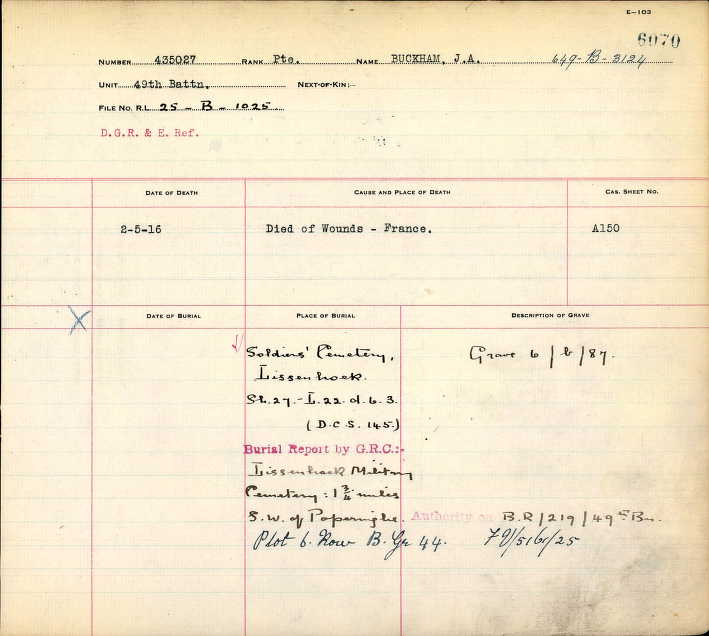 E-103
6070
NUMBER 435027 RANK Pte. NAME BUCKHAM, J.A. 649-B-3124
UNIT 49th Battn. NEXT-OF-KIN:-
FILE NO. R.L. 25 - B - 1025
D.G.R. & E. Ref.
DATE OF DEATH CAUSE AND PLACE OF DEATH CAS. SHEET NO.
2-5-16 Died of Wounds - France. A150
DATE OF BURIAL PLACE OF BURIAL DESCRIPTION OF GRAVE
Soldiers' Cemetery, Grave 6/b/87.
Lissenhoek.
Sh.27.-L.22.d.6.3.
(D.C.S. 145.)
Burial Report by G.R.C.:-
Lissenhoek Military
Cemetery: 1 3/4 miles
S.W. of Poperinghe. Authority on B.R/219/49th Bn.
Plot 6. Row B. Gr 44.